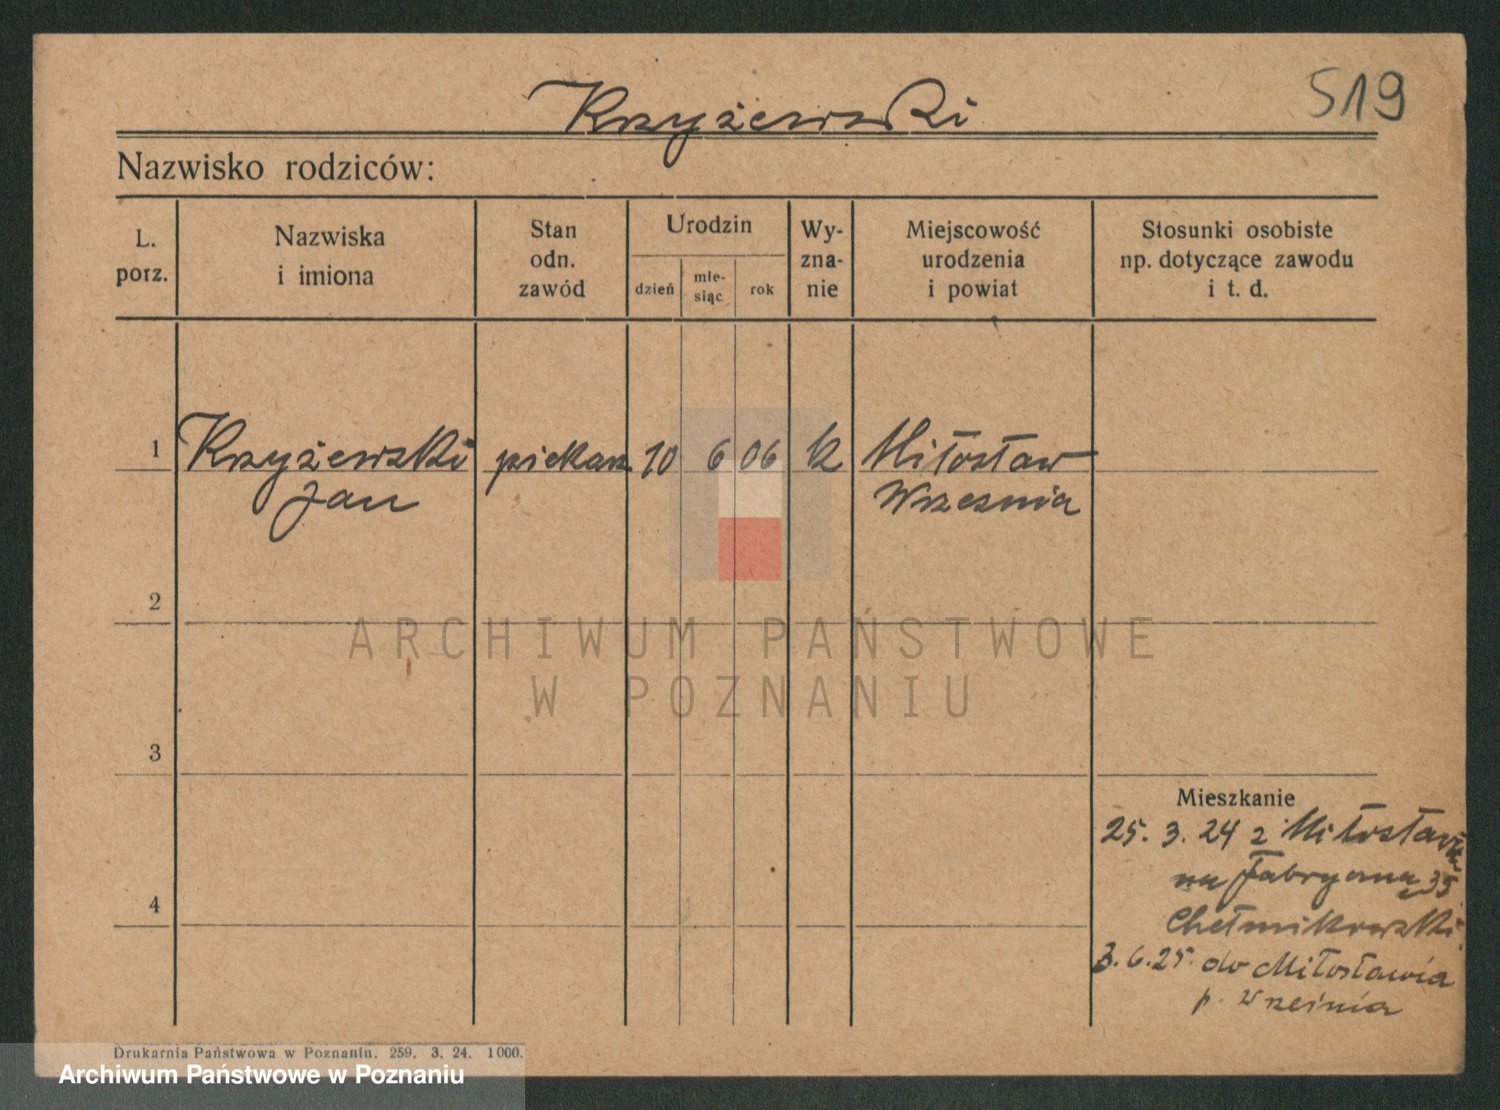 Krzyżewski
519
Nazwisko rodziców:
L. porz.
Nazwiska i imiona
Stan odn. zawód
Urodzin
dzień
mie-siąc
rok
Wy-zna-nie
Miejscowość urodzenia i powiat
Stosunki osobiste np. dotyczące zawodu i t. d.
1 Krzyżewski piekarz 10 6 06 k Miłosław
Jan Wrzesnia
2
ARCHIWUM PAŃSTWOWE
W POZNANIU
3
Mieszkanie
25. 3. 24 z Miłosławia
na Fabryczna 35
4
3. 6. 25. do Miłosławia
p. Wrzesnia
Drukarnia Państwowa w Poznaniu. 259. 3. 24. 1000.
Archiwum Państwowe w Poznaniu